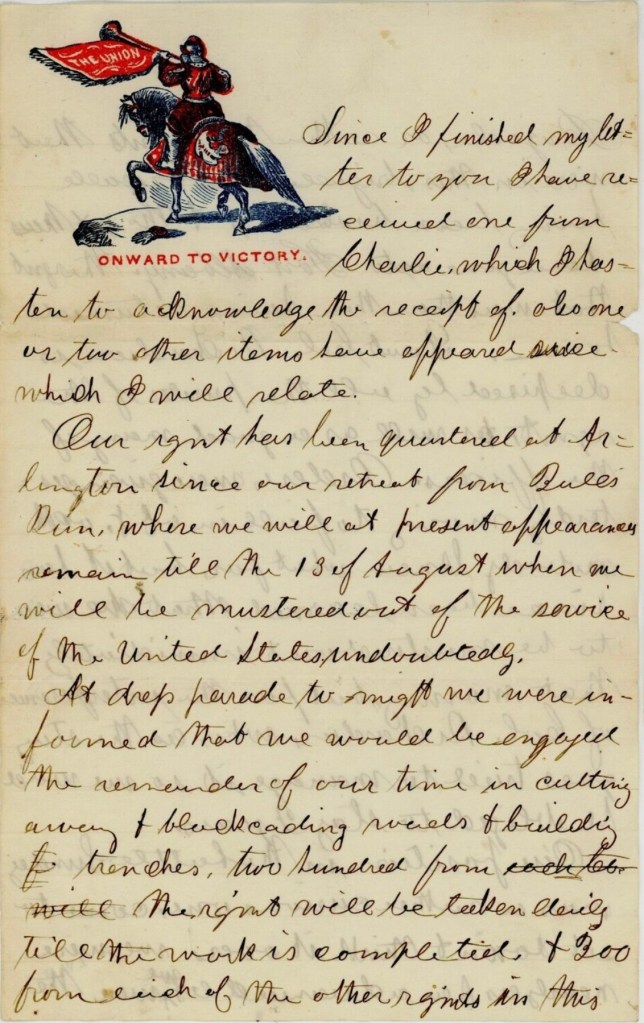 THE UNION
ONWARD TO VICTORY.
Since I finished my let=
ter to you I have re=
ceived one from
Charlie, which I has-
ten to acknowledge the receipt of. also one
or two other items have appeared since
which I will relate.
Our rgmt has been quartered at Ar-
lington since our retreat from Bulls
Run, where we will at present appearances
remain till the 13 of August when we
will be mustered out of the service
of the United States, undoubtedly.
At dress parade to-night we were in-
formed that we would be engaged
the remainder of our time in cutting
away & blockcading roads & building
trenches. two hundred from each Co.
will the rgmt will be taken daily
till the work is completed. & 300
from each of the other rgmts in this